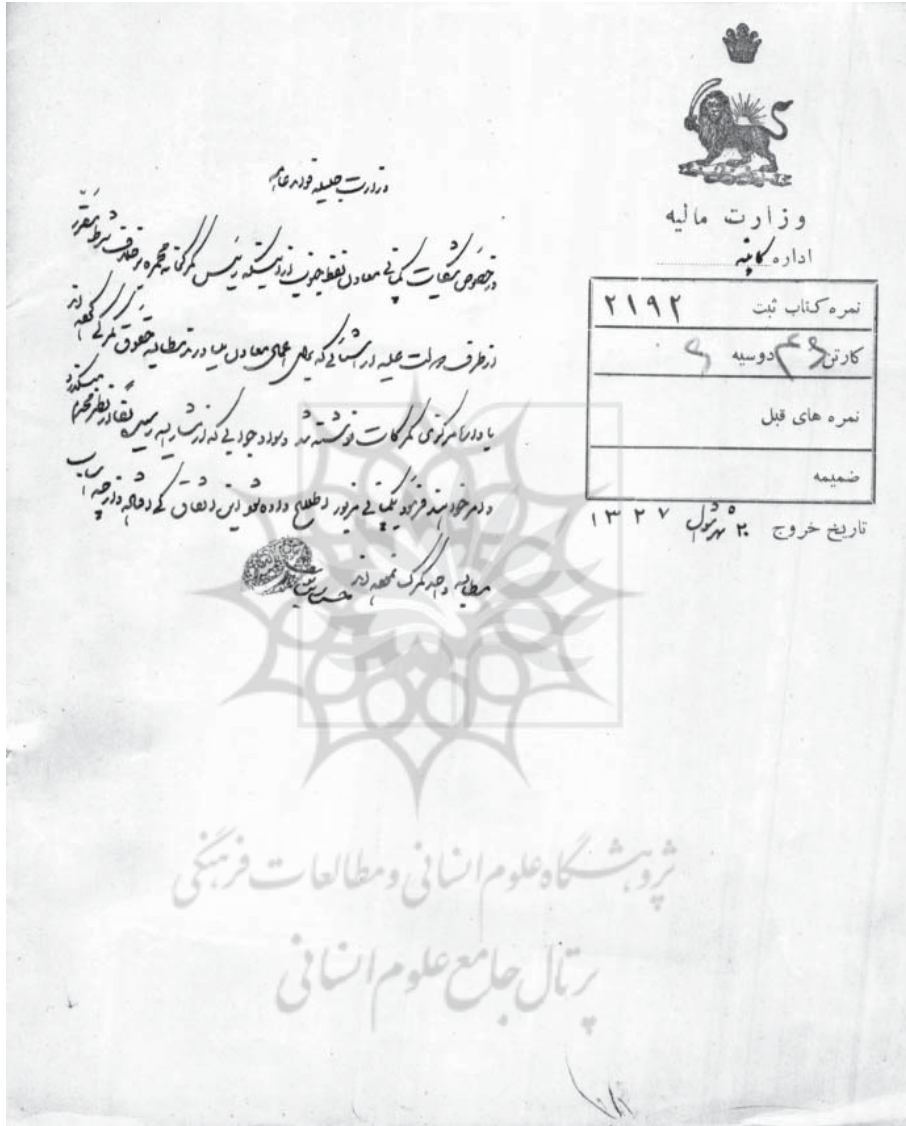 وزارت مالیه
اداره کابینه
نمره کتاب ثبت ۲۱۹۲
کارتن دوسیه
نمره های قبل
ضمیمه
تاریخ خروج ۲۰ شهر شوال ۱۳۲۷
وزارت جلیله فوائد عامه
در خصوص شکایت کمپانی معادن نفط جنوب از اینکه رئیس گمرکخانه محمره بر خلاف شرایط مقرره
از طرف دولت علیه از اشیائی که برای اعمال معادن میاورند مطالبه حقوق گمرکی کرده اند
با داره مرکزی گمرکات نوشته شد و سواد جوابی که رسیده لفا از نظر محترم میگذرد
و امر خواهند فرمود بکمپانی مزبور اطلاع داده شود این اتفاق
مطالبه گمرک نخواهند
پژوهشگاه علوم انسانی و مطالعات فرهنگی
پرتال جامع علوم انسانی